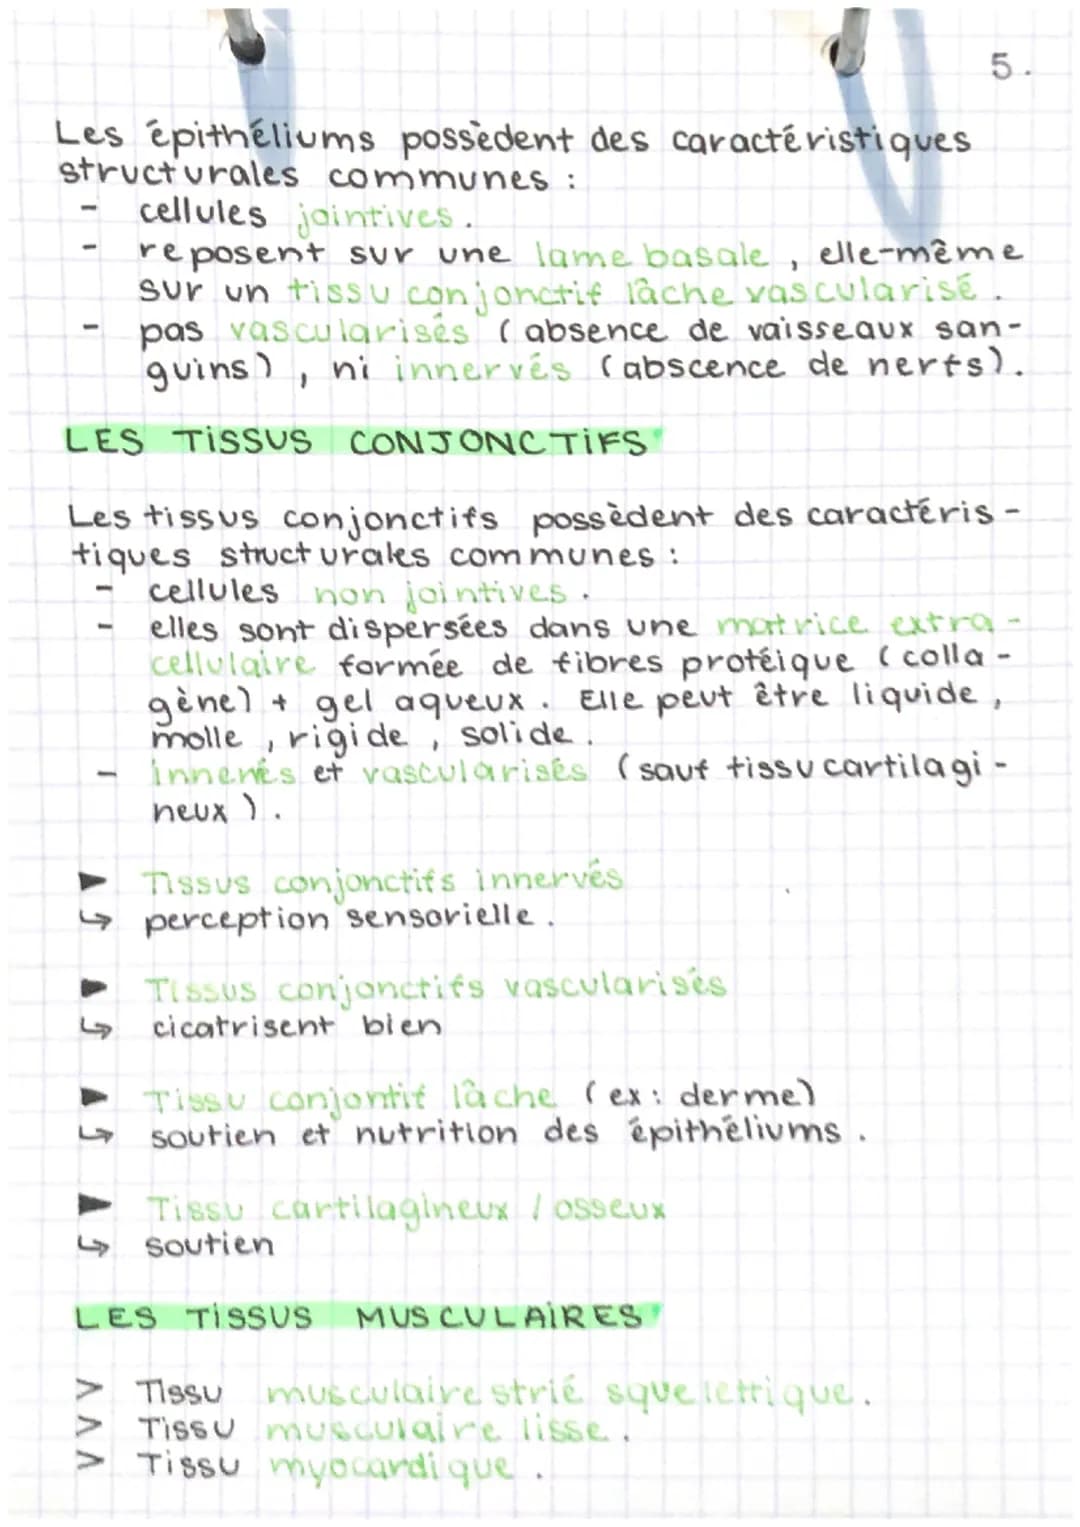 5.
Les épithéliums possèdent des caractéristiques
structurales communes :
- cellules jointives.
- reposent sur une lame basale, elle-même
sur un tissu conjonctif lâche vascularisé.
- pas vascularisés (absence de vaisseaux san-
guins), ni innervés (abscence de nerfs).
LES TISSUS CONJONCTIFS
Les tissus conjonctifs possèdent des caractéris-
tiques structurales communes :
- cellules non jointives.
- elles sont dispersées dans une matrice extra-
cellulaire formée de fibres protéique (colla-
gène) + gel aqueux. Elle peut être liquide,
molle, rigide, solide.
- innervés et vascularisés (sauf tissu cartilagi-
neux).
▶ Tissus conjonctifs innervés
↳ perception sensorielle.
▶ Tissus conjonctifs vascularisés
↳ cicatrisent bien
▶ Tissu conjontif lâche (ex: derme)
↳ soutien et nutrition des épithéliums.
▶ Tissu cartilagineux / osseux
↳ soutien
LES TISSUS MUSCULAIRES
> Tissu musculaire strié squelettique.
> Tissu musculaire lisse.
> Tissu myocardique.